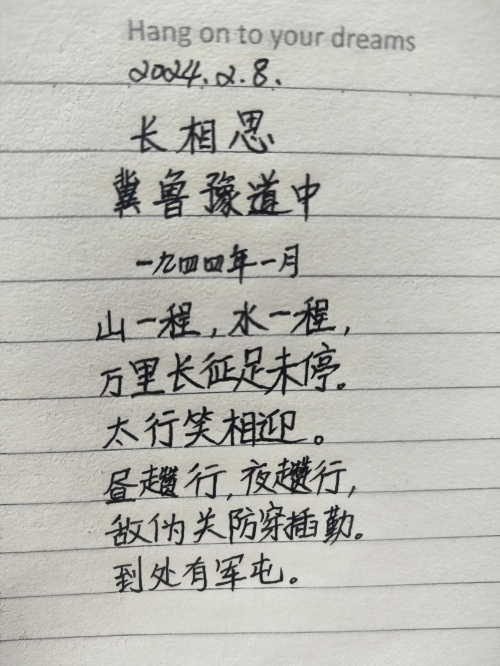 Hang on to your dreams
2024.2.8.
长相思
冀鲁豫道中
一九四四年一月
山一程，水一程，
万里长征足未停。
太行笑相迎。
昼趱行，夜趱行，
敌伪关防穿插勤。
到处有军屯。